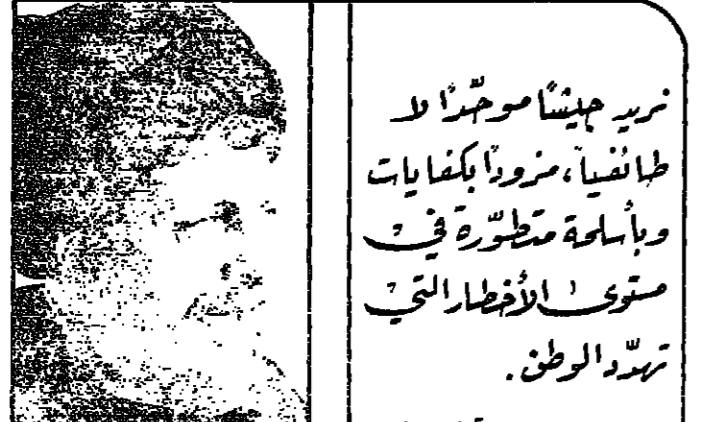 نريد جيشًا موحّدًا لا
طائفياً، مزودًا بكفايات
وبأسلحة متطوّرة في
مستوى الأخطار التي
تهدّد الوطن.